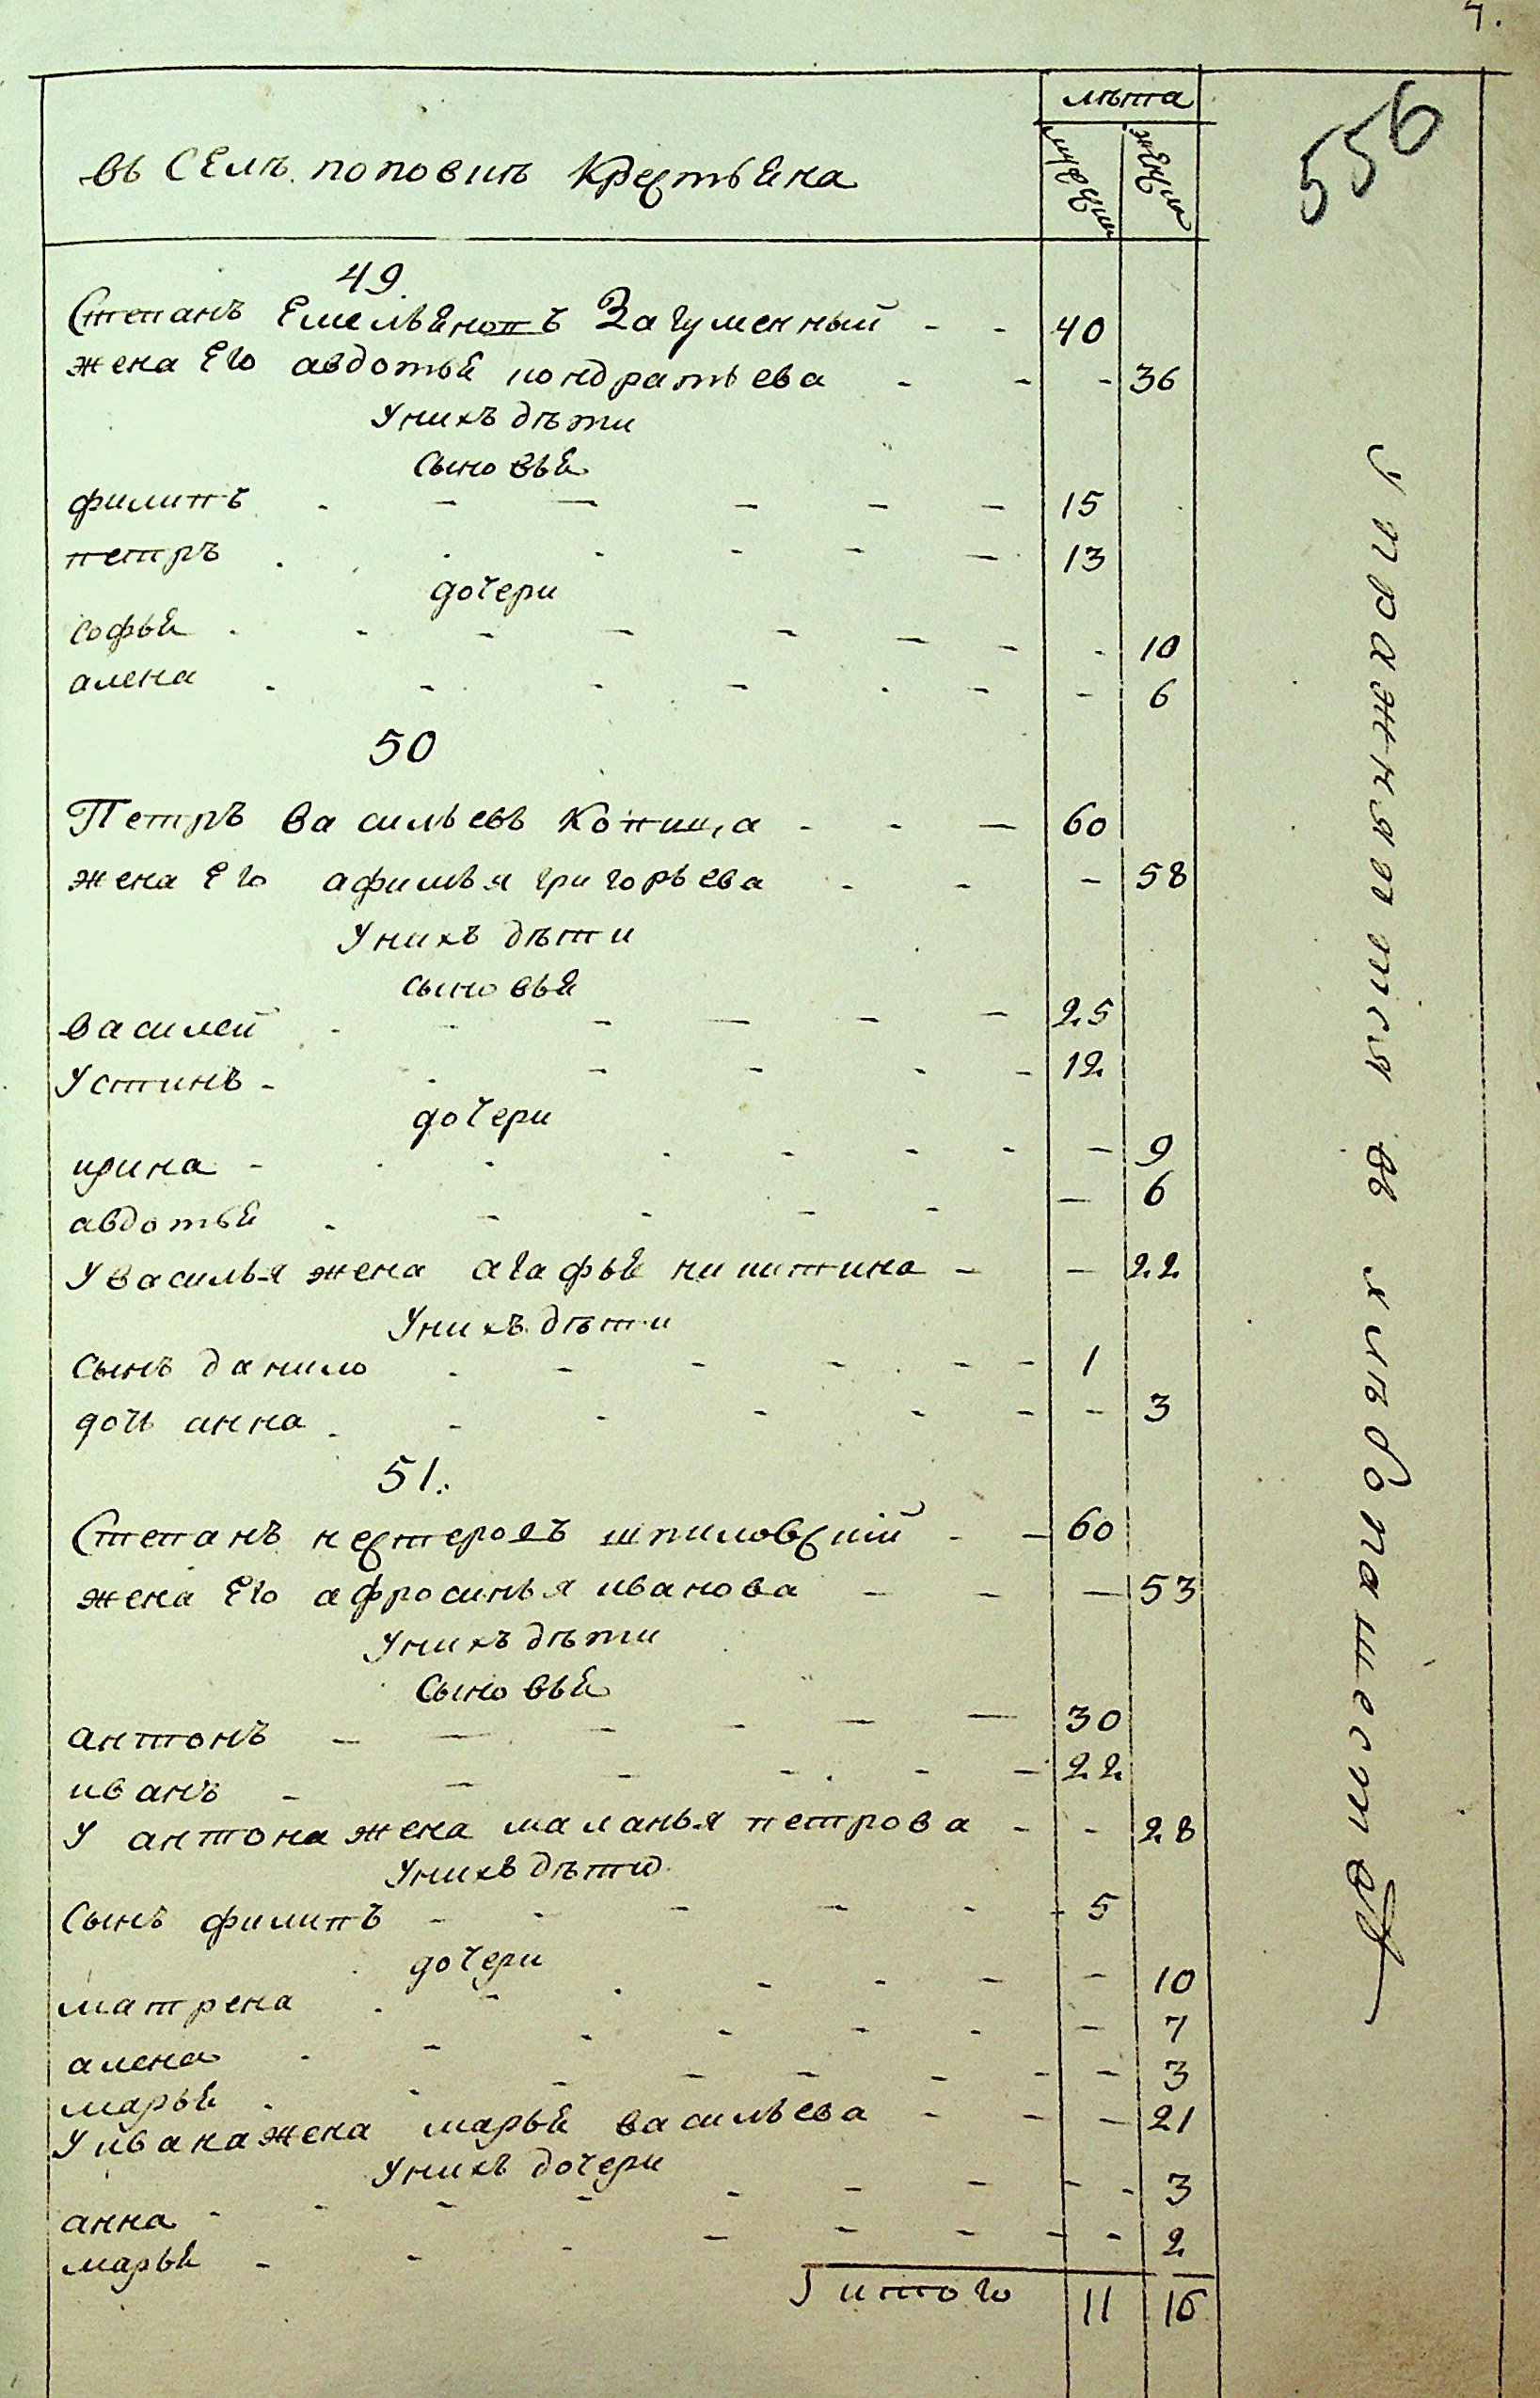 лѣта
мужеск женска
въ Селѣ поповкѣ Крестьяна
556
49.
Степанъ Емельяновъ Загуменный - - 40
жена Его авдотья кондратьева - - - 36
У нихъ дѣти
Сыновья
филипъ - - - - - - 15
петръ - - - - - - 13
дочери
софья - - - - - - - - 10
алена - - - - - - - 6
50
Петръ васильевъ Копица - - - 60
жена Его афимья григорьева - - - 58
У нихъ дѣти
сыновья
василей - - - - - - 25
Устинъ - - - - - - 12
дочери
ирина - - - - - - - - 9
авдотья - - - - - - 6
У василья жена агафья никитина - - 22
У нихъ дѣти
сынъ данило - - - - - - 1
дочь анна - - - - - - - 3
51.
Степанъ нестеровъ шпиловский - - 60
жена Его афросинья иванова - - - 53
У нихъ дѣти
Сыновья
антонъ - - - - - - 30
иванъ - - - - - - 22
У антона жена маланья петрова - - 28
У нихъ дѣти
Сынъ филипъ - - - - - - 5
дочери
матрена - - - - - - - 10
алена - - - - - - - 7
марья - - - - - - - - 3
У ивана жена марья васильева - - - 21
У нихъ дочери
анна - - - - - - - - - 3
марья - - - - - - - - 2
итого 11 16
Упражняется в хлебопашестве